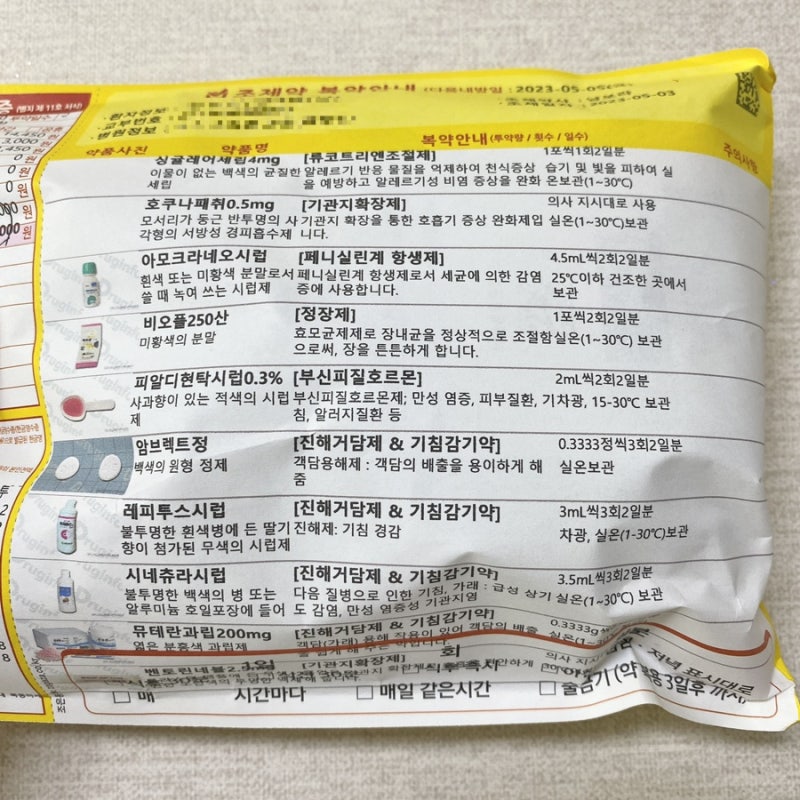 조제약 복약안내 (다음내방일 : 2023-05-05(금)
환자정보 :
교부번호 :
병원정보 :
2023-05-03
약품사진 약품명 복약안내(투약량 / 횟수 / 일수) 주의사항
싱귤레어세립4mg [류코트리엔조절제] 1포씩1회2일분
이물이 없는 백색의 균질한 알레르기 반응 물질을 억제하여 천식증상 습기 및 빛을 피하여 실
세립 을 예방하고 알레르기성 비염 증상을 완화 온보관(1~30℃)
호쿠나패취0.5mg [기관지확장제] 의사 지시대로 사용
모서리가 둥근 반투명의 사 기관지 확장을 통한 호흡기 증상 완화제입 실온(1~30℃)보관
각형의 서방성 경피흡수제 니다.
아모크라네오시럽 [페니실린계 항생제] 4.5mL씩2회2일분
흰색 또는 미황색 분말로서 페니실린계 항생제로서 세균에 의한 감염 25℃이하 건조한 곳에서
쓸 때 녹여 쓰는 시럽제 증에 사용합니다. 보관
비오플250산 [정장제] 1포씩2회2일분
미황색의 분말 효모균제제로 장내균을 정상적으로 조절함 실온(1~30℃) 보관
으로써, 장을 튼튼하게 합니다.
피알디현탁시럽0.3% [부신피질호르몬] 2mL씩2회2일분
사과향이 있는 적색의 시럽 부신피질호르몬제; 만성 염증, 피부질환, 기 차광, 15-30℃ 보관
제 침, 알러지질환 등
암브렉트정 [진해거담제 & 기침감기약] 0.3333정씩3회2일분
백색의 원형 정제 객담용해제 : 객담의 배출을 용이하게 해 실온보관
줌
레피투스시럽 [진해거담제 & 기침감기약] 3mL씩3회2일분
불투명한 흰색병에 든 딸기 진해제: 기침 경감 차광, 실온(1-30℃)보관
향이 첨가된 무색의 시럽제
시네츄라시럽 [진해거담제 & 기침감기약] 3.5mL씩3회2일분
불투명한 백색의 병 또는 다음 질병으로 인한 기침, 가래 : 급성 상기 실온(1~30℃) 보관
알루미늄 호일포장에 들어 도 감염, 만성 염증성 기관지염
뮤테란과립200mg [진해거담제 & 기침감기약] 0.3333g
엷은 분홍색 과립제 객담(가래) 용해 작용이 있어 객담의 배출 실온(1~30℃)
벤토린네뷸2.5 [기관지확장제] 의사 지시
1일 회
저녁 표시대로
□ 매 시간마다 □ 매일 같은시간 □